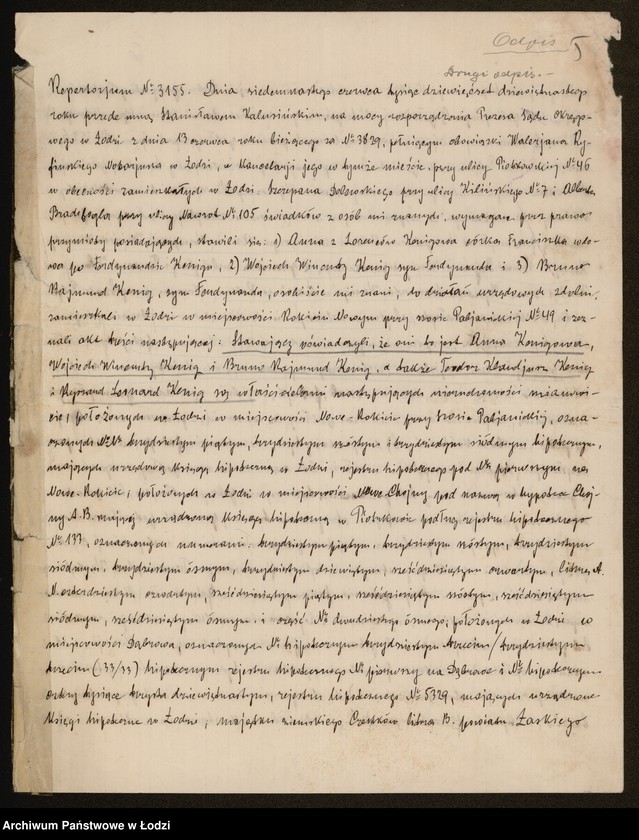 Odpis 5
Drugi odpis.-
Repertorjum № 3155. Dnia siedemnastego czerwca tysiąc dziewięćset dziewiętnastego
roku przede mną Stanisławem Kalusińskim, na mocy rozporządzenia Prezesa Sądu Okręgo-
wego w Łodzi z dnia 13 czerwca roku bieżącego za № 3829, pełniącym obowiązki Walerjana Ry-
fińskiego Notarjusza w Łodzi, w Kancelarji jego w temże mieście, przy ulicy Piotrkowskiej № 46
w obecności zamieszkałych w Łodzi Szczepana przy ulicy Kilińskiego № 7 i Alberta
przy ulicy Nawrot № 105 świadków z osób mi znanych, wymagane przez prawo
przymioty posiadających, stawili się: 1) Anna z Lorenców Kenigowa córka Franciszka wdo-
wa po Ferdynandzie Kenigu, 2) Wojciech Wincenty Kenig syn Ferdynanda i 3) Bruno
Rajmund Kenig, syn Ferdynanda, osobiście mi znani, do działań urzędowych zdolni,
zamieszkali w Łodzi w miejscowości Rokiciu Nowym przy szosie Pabjanickiej № 49 i zez-
nali akt treści następującej: Stawający oświadczyli, że oni to jest Anna Kenigowa,
Wojciech Wincenty Kenig i Bruno Rajmund Kenig, a także Teodor Klaudjusz Kenig
i Ryszard Leonard Kenig są właścicielami następujących nieruchomości miano-
wicie: położonych w Łodzi w miejscowości Nowe-Rokicie przy szosie Pabjanickiej, ozna-
czonych №№ trzydziestym piątym, trzydziestym szóstym i trzydziestym siódmym hipotecznym,
mających urządzoną księgę hipoteczną w Łodzi, rejestru hipotecznego pod № pierwszym na
Nowe-Rokicie; położonych w Łodzi w miejscowości Nowe Chojny pod nazwą w hypotece Choj-
ny A.B. mającej urządzoną księgę hipoteczną w Piotrkowie podług rejestru hipotecznego
№ 133, oznaczonych numerami: trzydziestym piątym, trzydziestym szóstym, trzydziestym
siódmym, trzydziestym ósmym, trzydziestym dziewiątym, sześćdziesiątym czwartym, litera A.
sześćdziesiątym piątym, sześćdziesiątym szóstym, sześćdziesiątym
siódmym, sześćdziesiątym ósmym, i część № dwudziestego ósmego; położonych w Łodzi w
miejscowości Dąbrowa, oznaczonym № hipotecznym trzydziestym trzecim / trzydziestym
trzecim (33/33) hipotecznym rejestru hipotecznego № pierwszy na Dąbrowie i № hipotecznym
cztery tysiące trzysta dziewiętnastym, rejestru hipotecznego № 5329, mających urządzone
księgi hipoteczne w Łodzi; majątku ziemskiego litera B. powiatu Łaskiego
Archiwum Państwowe w Łodzi